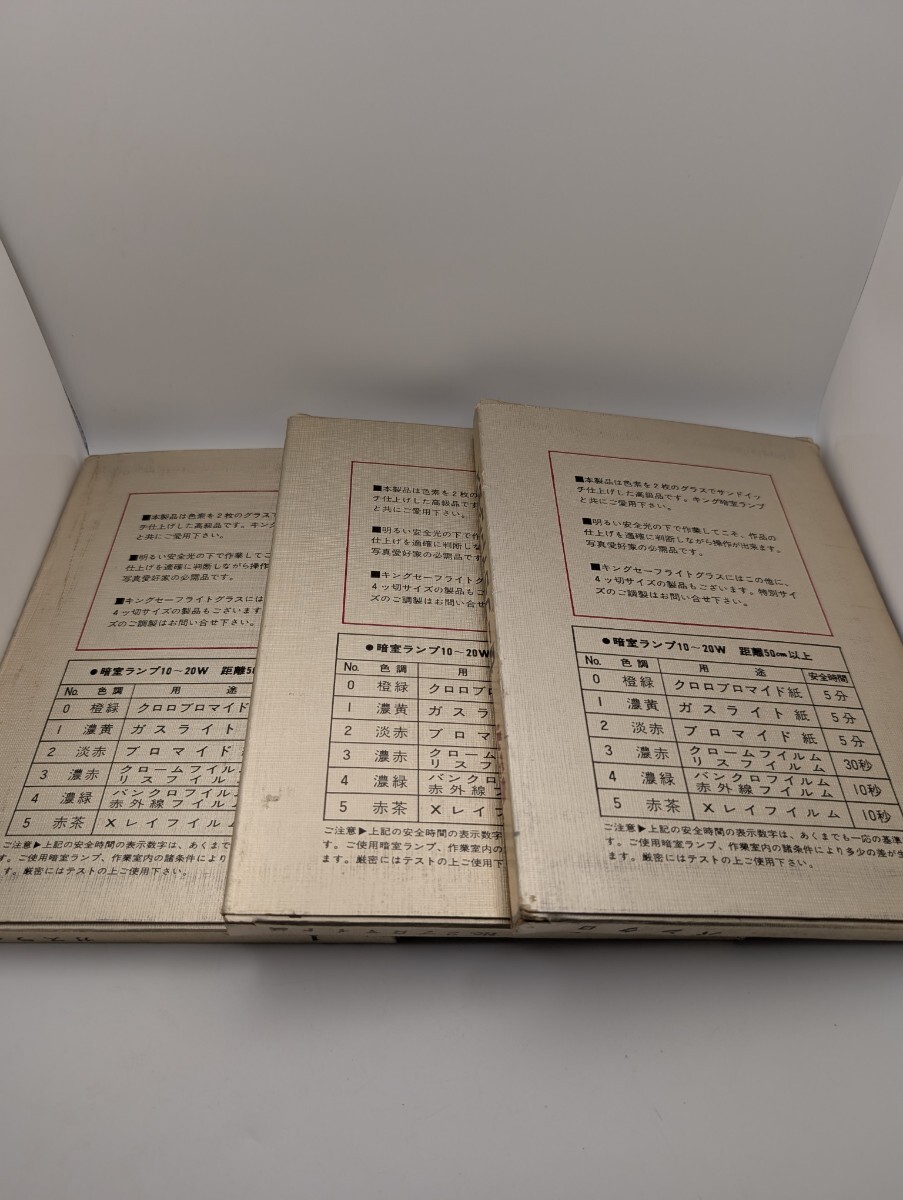 ■本製品は色素を2枚のグラスで
チ仕上げした高級品です。キング
と共にご愛用下さい。
■明るい安全光の下で作業してこ
仕上げを適確に判断しながら操作
写真愛好家の必需品です。
■キングセーフライトグラスには
4ッ切サイズの製品もございます
ズのご調製はお問い合せ下さい。
●暗室ランプ10〜20W 距離5
No. 色調 用途
0 橙緑 クロロブロマイド
1 濃黄 ガスライト
2 淡赤 ブロマイド
3 濃赤 クロームフイル
リスフイル
4 濃緑 パンクロフイル
赤外線フイル
5 赤茶 Xレイフイル
ご注意▶上記の安全時間の表示数字は、あくまで
す。ご使用暗室ランプ、作業室内の諸条件により
ます。厳密にはテストの上ご使用下さい。
■本製品は色素を2枚の
チ仕上げした高級品です
と共にご愛用下さい。
■明るい安全光の下で作
仕上げを適確に判断しな
写真愛好家の必需品です
■キングセーフライトグ
4ッ切サイズの製品もご
ズのご調製はお問い合せ
●暗室ランプ10〜20W
No. 色調 用
0 橙緑 クロロブ
1 濃黄 ガスラ
2 淡赤 ブロマ
3 濃赤 クローム
リスフ
4 濃緑 パンクロ
赤外線フ
5 赤茶 Xレイ
ご注意▶上記の安全時間の表示数
す。ご使用暗室ランプ、作業室内の
ます。厳密にはテストの上ご使用下
■本製品は色素を2枚のグラスでサンドイッ
チ仕上げした高級品です。キング暗室ランプ
と共にご愛用下さい。
■明るい安全光の下で作業してこそ、作品の
仕上げを適確に判断しながら操作が出来ます。
写真愛好家の必需品です。
■キングセーフライトグラスにはこの他に、
4ッ切サイズの製品もございます。特別サイ
ズのご調製はお問い合せ下さい。
●暗室ランプ10〜20W 距離50cm以上
No. 色調 用途 安全時間
0 橙緑 クロロブロマイド紙 5分
1 濃黄 ガスライト紙 5分
2 淡赤 ブロマイド紙 5分
3 濃赤 クロームフイルム
リスフイルム 30秒
4 濃緑 パンクロフイルム
赤外線フイルム 10秒
5 赤茶 Xレイフイルム 10秒
ご注意▶上記の安全時間の表示数字は、あくまでも一応の基準
す。ご使用暗室ランプ、作業室内の諸条件により多少の差が生
ます。厳密にはテストの上ご使用下さい。
パンクロ